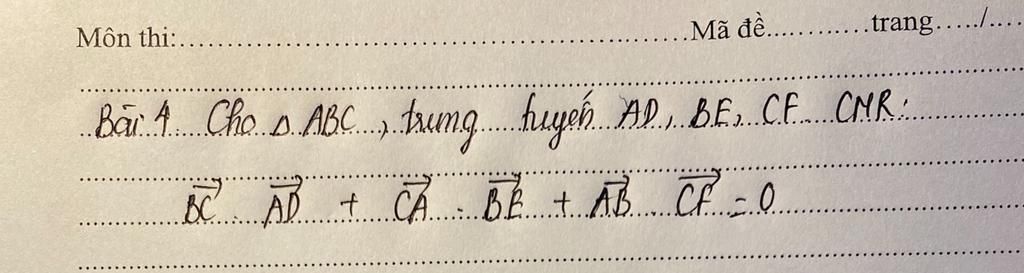 Môn thi:..........Mã đề..........trang...../.....
Bài 4 Cho △ ABC, trung tuyến AD, BE, CF CMR:
$\overrightarrow{BC} . \overrightarrow{AD} + \overrightarrow{CA} . \overrightarrow{BE} + \overrightarrow{AB} . \overrightarrow{CF} = 0$